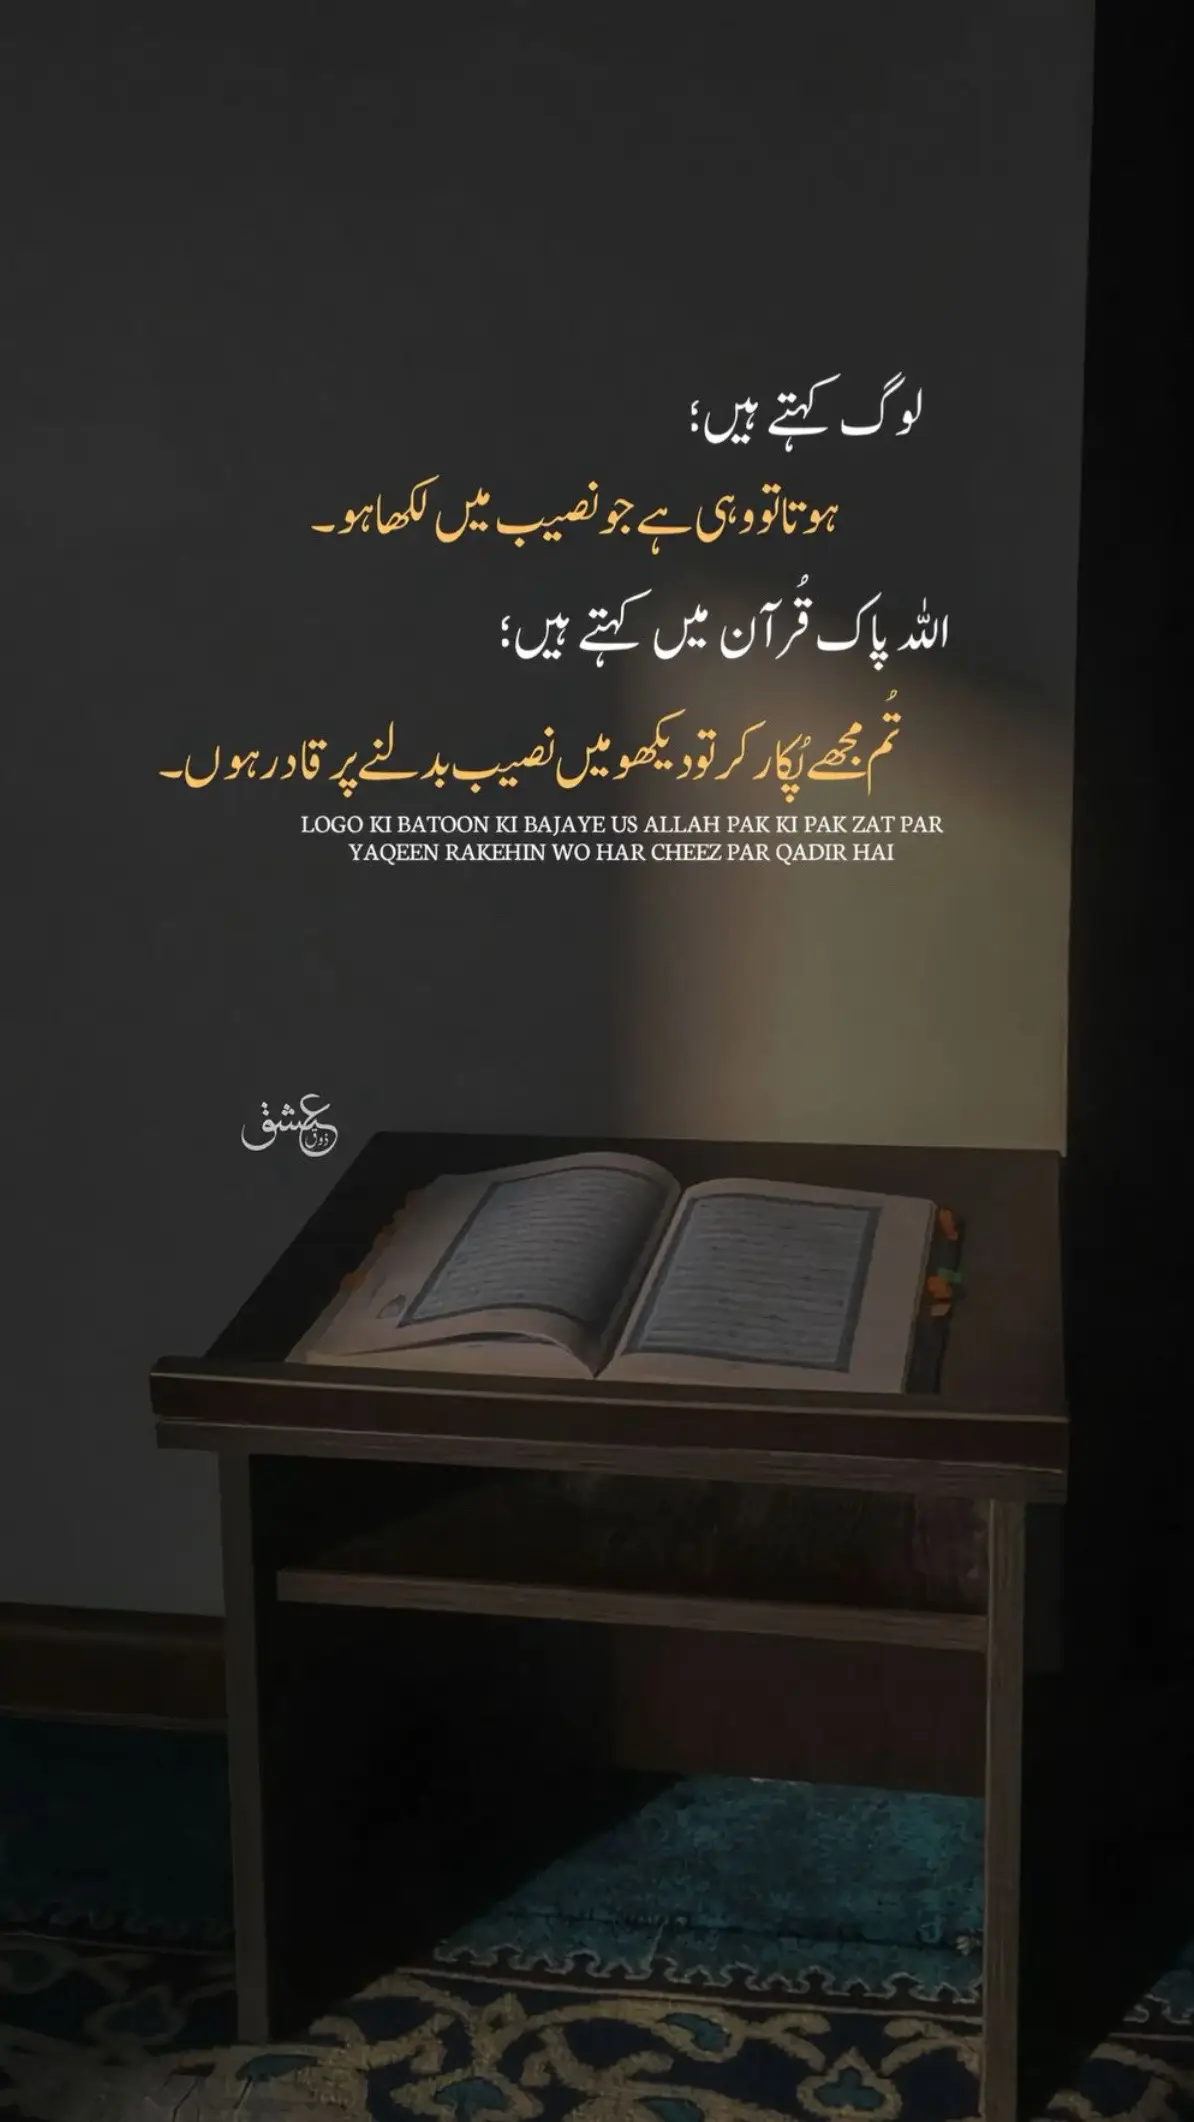 لوگ کہتے ہیں؛
ہوتا تو وہی ہے جو نصیب میں لکھا ہو۔
اللہ پاک قُرآن میں کہتے ہیں؛
تُم مجھے پُکار کر تو دیکھو میں نصیب بدلنے پر قادر ہوں۔
LOGO KI BATOON KI BAJAYE US ALLAH PAK KI PAK ZAT PAR
YAQEEN RAKEHIN WO HAR CHEEZ PAR QADIR HAI
ذوق عشق